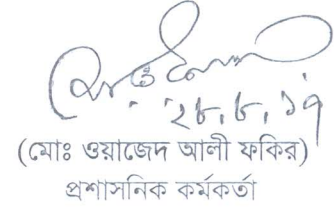 ২৮.৮.১৭
(মোঃ ওয়াজেদ আলী ফকির)
প্রশাসনিক কর্মকর্তা